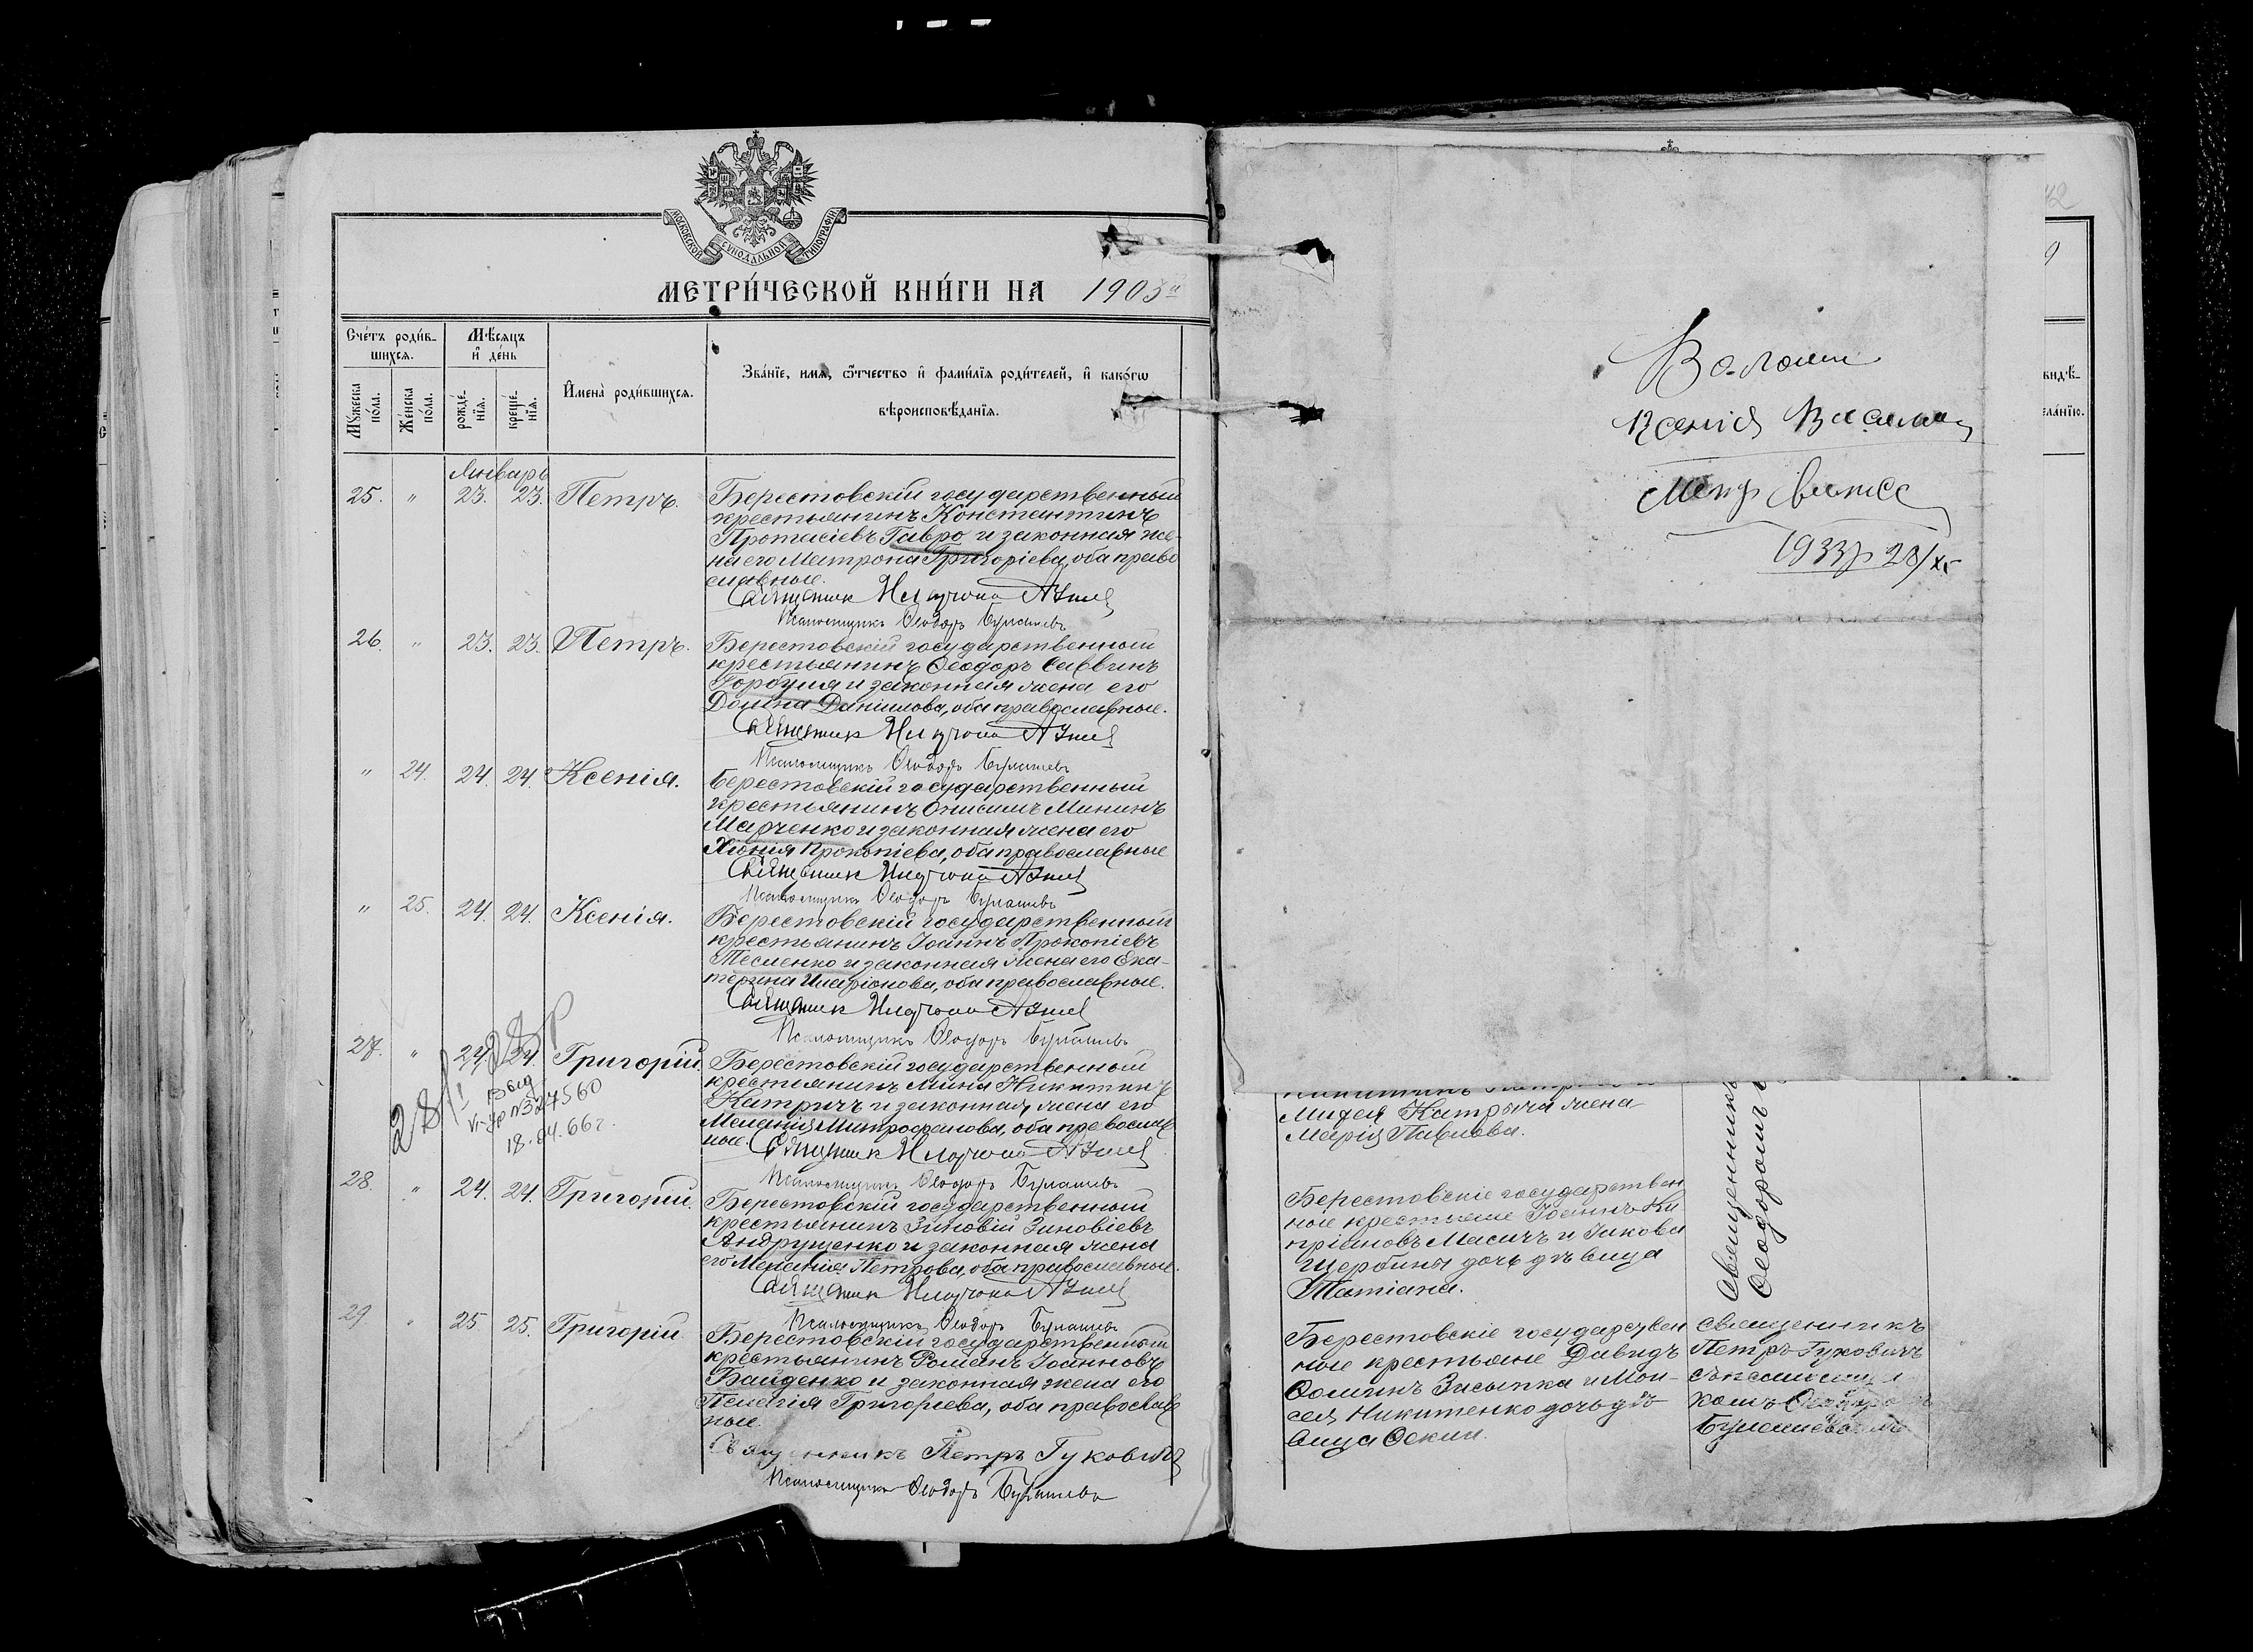 МОСКОВСКОЙ СУНОДАЛЬНОЙ ТИПОГРАФІИ
МЕТРИ́ЧЕСКОЙ КНИ́ГИ НА 1903й
Сче́тъ роди́в-
шихся.
Мѣсяцъ
и҆ де́нь
Му́жеска
по́ла.
Же́нска
по́ла.
рожде́-
нїя.
креще́-
нїя.
И҆мена̀ роди́вшихся.
Зва́нїе, имя, ѻ҆́тчество и҆ фами́лїя роди́телей, и҆ како́гѡ
вѣроисповѣ́данїя.
Январь
25. " 23. 23. Петръ.
Берестовскій государственный
крестьянинъ Константинъ
Протасіевъ Гавро и законная же-
на его Матрона Григоріева, оба право
славные.
Священник
Псаломщикъ Ѳеодоръ Булашевъ
26. " 23. 23. Петръ.
Берестовскій государственный
крестьянинъ Ѳеодоръ Саввинъ
Горбуля и законная жена его
Домна Даніилова, оба православные.
Священник
Псаломщикъ Ѳеодоръ Булашевъ
" 24. 24. 24. Ксенія.
Берестовскій государственный
крестьянинъ Онисимъ Мининъ
Марченко и законная жена его
Хіонія Прокопіева, оба православные
Священник
Псаломщикъ Ѳеодоръ Булашевъ
" 25. 24. 24. Ксенія.
Берестовскій государственный
крестьянинъ Іоаннъ Прокопіевъ
Тесленко и законная жена его Ека-
терина Иларіонова, оба православные.
Священник
Псаломщикъ Ѳеодоръ Булашевъ
27. " 24. 24. Григорій
Берестовскій государственный
крестьянинъ Мина Никитинъ
Катричъ и законная жена его
Меланія Митрофанова, оба православ
ные. Священник
Псаломщикъ Ѳеодоръ Булашевъ
18.04.66г.
28. " 24. 24. Григорій.
Берестовскій государственный
крестьянинъ Зиновій Зиновіевъ
Андрущенко и законная жена
его Меланія Петрова, оба православные.
Священник
Псаломщикъ Ѳеодоръ Булашевъ
29 " 25. 25. Григорій
Берестовскій государственный
крестьянинъ Романъ Іоанновъ
Байденко и законная жена его
Пелагія Григоріева, оба православ
ные.
Священникъ Петръ Гуковичъ
Псаломщикъ Ѳеодоръ Булашевъ
Ксенія
1933р 28/
42
видѣ-
ела́нїю.
Мидея Катрыча жена
Марія Павлова.
Священникъ
Ѳеодоромъ
Берестовскіе государствен
ные крестьяне Іоаннъ Ки
пріановъ Масичъ и Іакова
Щербины дочь дѣвица
Татіана.
Берестовскіе государствен
ные крестьяне Давидъ
Ѳоминъ Засыпка и Мои-
сея Никитенко дочь дѣ-
вица Ѳекла.
Священникъ
Петръ Гуковичъ
съ псаломщи
комъ Ѳеодоромъ
Булашевымъ